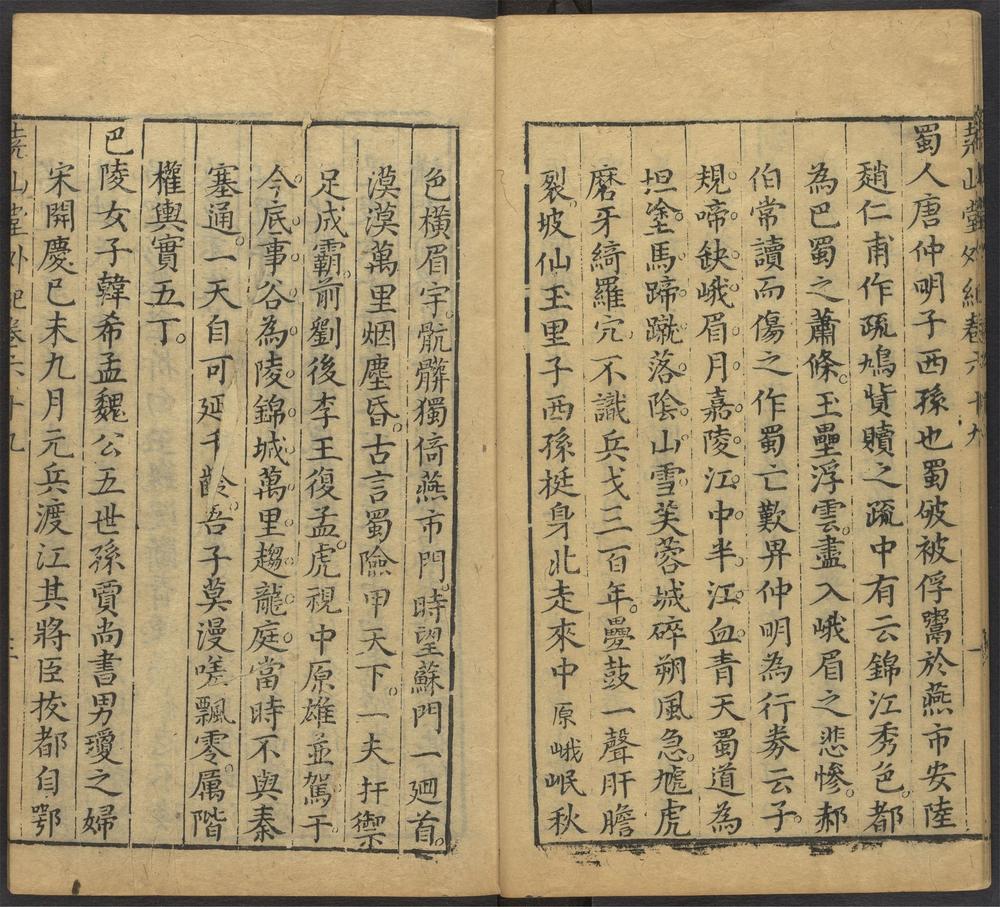 堯山堂外紀卷六十九
蜀人唐仲明子西孫也蜀破被俘鬻於燕市安陸
趙仁甫作疏鳩貲贖之疏中有云錦江秀色都
為巴蜀之蕭條玉壘浮雲盡入峨眉之悲慘郝
伯常讀而傷之作蜀亡歎畀仲明為行劵云子
規啼缺峨眉月嘉陵江中半江血青天蜀道為
坦塗馬蹄蹴落陰山雪芙蓉城碎朔風急虓虎
磨牙綺羅穴不識兵戈三百年疊鼓一聲肝膽
裂坡仙玉里子西孫挺身北走來中原峨岷秋
色橫眉宇骯髒獨倚燕市門時望蘇門一廻首
漠漠萬里烟塵昏古言蜀險甲天下一夫扞禦
足成霸前劉後李王復孟虎視中原雄並駕于
今底事谷為陵錦城萬里趨龍庭當時不與秦
塞通一天自可延千齡吾子莫漫嗟飄零厲階
權輿實五丁
巴陵女子韓希孟魏公五世孫賈尚書男瓊之婦
宋開慶巳未九月元兵渡江其將臣拔都自鄂
堯山堂外紀卷六十九